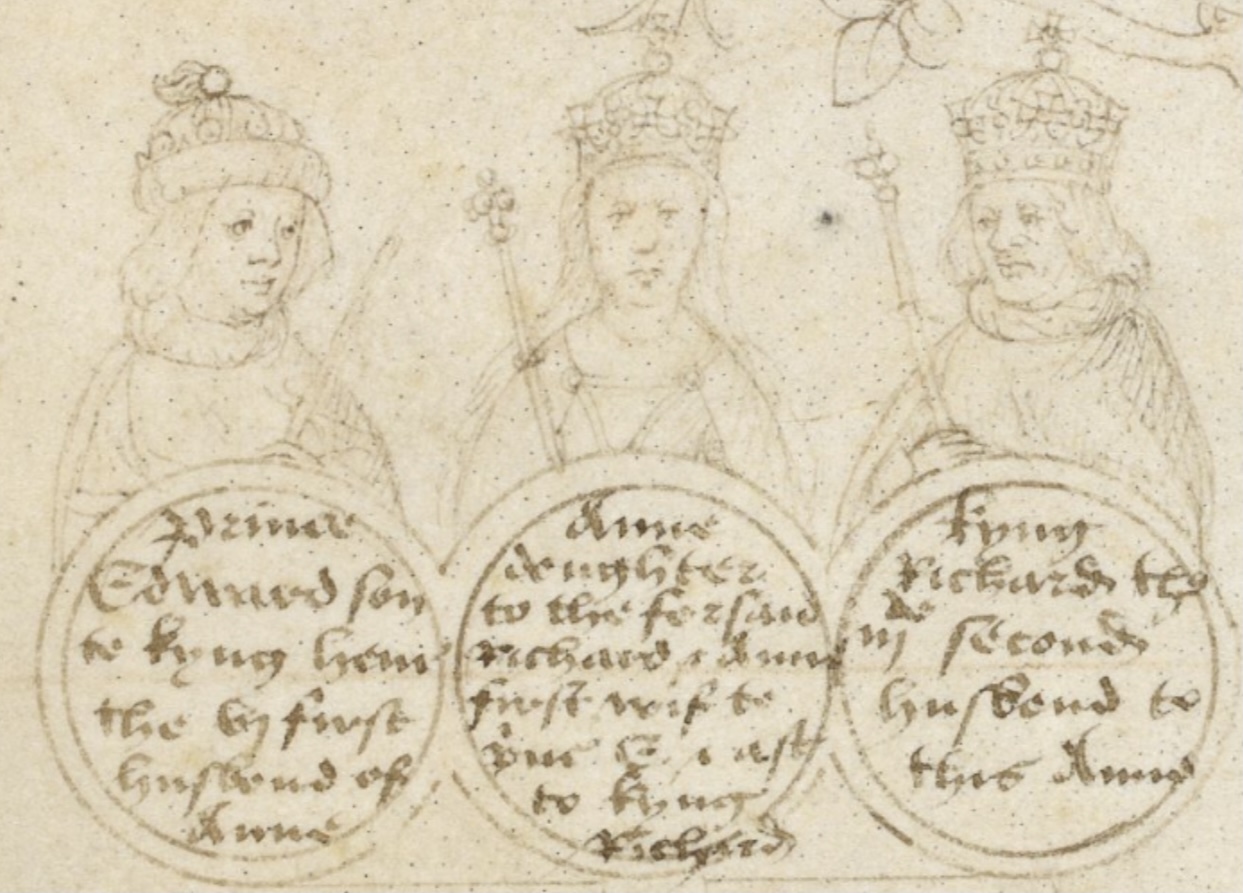 Prince
Edward son
to kyng henr
the vj first
husbond of
Anne
Anne
doughter
to the forsaid
Richard & Anne
first wif to
& last
to kyng
Richard
kyng
Richard the
iijde second
husbond to
this Anne